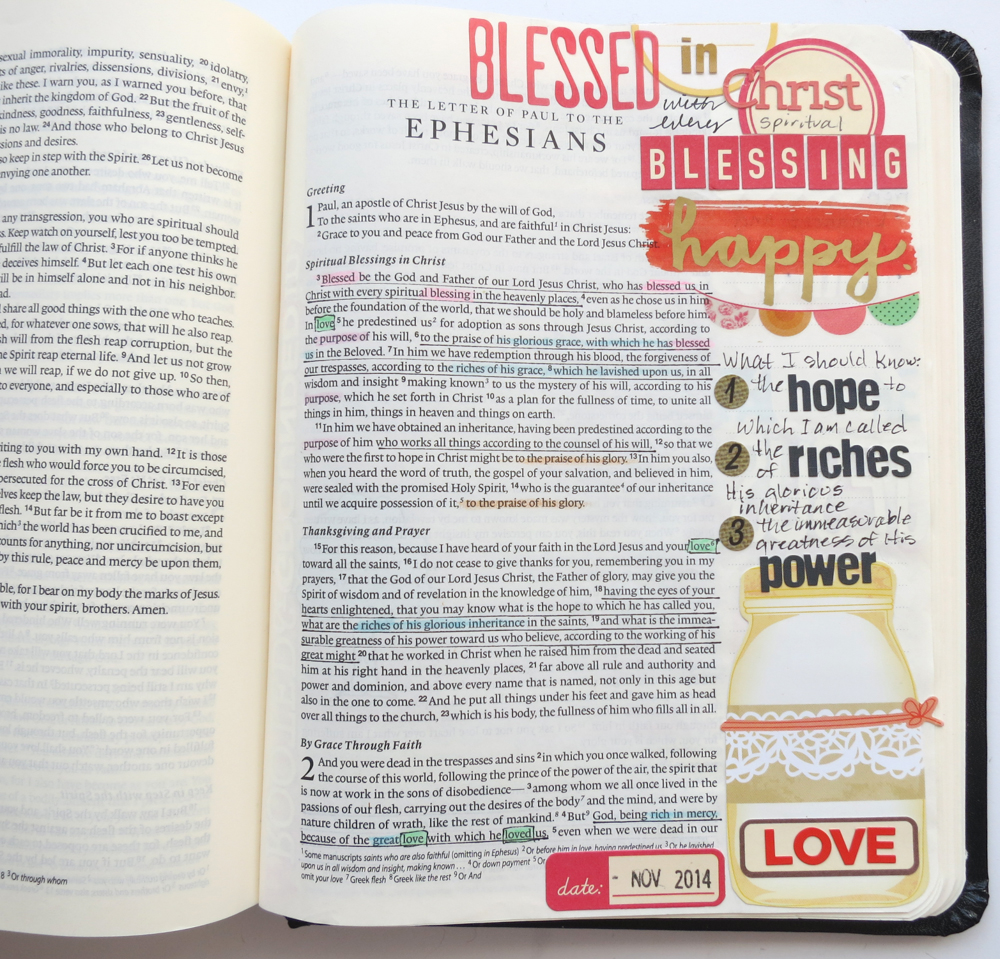 sexual immorality, impurity, sensuality, 20 idolatry,
s of anger, rivalries, dissensions, divisions, 21 envy,
like these. I warn you, as I warned you before, that
inherit the kingdom of God. 22 But the fruit of the
kindness, goodness, faithfulness, 23 gentleness, self-
is no law. 24 And those who belong to Christ Jesus
sions and desires.
so keep in step with the Spirit. 26 Let us not become
nvying one another.
any transgression, you who are spiritual should
s. Keep watch on yourself, lest you too be tempted.
fulfill the law of Christ. 3 For if anyone thinks he
deceives himself. 4 But let each one test his own
ill be in himself alone and not in his neighbor.
ad.
share all good things with the one who teaches.
ed, for whatever one sows, that will he also reap.
sh will from the flesh reap corruption, but the
e Spirit reap eternal life. 9 And let us not grow
we will reap, if we do not give up. 10 So then,
to everyone, and especially to those who are
iting to you with my own hand. 12 It is those
flesh who would force you to be circumcised,
persecuted for the cross of Christ. 13 For even
lves keep the law, but they desire to have you
flesh. 14 But far be it from me to boast except
hich 3 the world has been crucified to me, and
counts for anything, nor uncircumcision, but
by this rule, peace and mercy be upon them,
ble, for I bear on my body the marks of Jesus.
with your spirit, brothers. Amen.
8 5 Or through whom
BLESSED in
Christ
with every spiritual
BLESSING
happy.
THE LETTER OF PAUL TO THE
EPHESIANS
Greeting
1 Paul, an apostle of Christ Jesus by the will of God,
To the saints who are in Ephesus, and are faithful 1 in Christ Jesus:
2 Grace to you and peace from God our Father and the Lord Jesus Christ.
Spiritual Blessings in Christ
3 Blessed be the God and Father of our Lord Jesus Christ, who has blessed us in
Christ with every spiritual blessing in the heavenly places, 4 even as he chose us in him
before the foundation of the world, that we should be holy and blameless before him.
In love 5 he predestined us 2 for adoption as sons through Jesus Christ, according to
the purpose of his will, 6 to the praise of his glorious grace, with which he has blessed
us in the Beloved. 7 In him we have redemption through his blood, the forgiveness of
our trespasses, according to the riches of his grace, 8 which he lavished upon us, in all
wisdom and insight 9 making known 3 to us the mystery of his will, according to his
purpose, which he set forth in Christ 10 as a plan for the fullness of time, to unite all
things in him, things in heaven and things on earth.
11 In him we have obtained an inheritance, having been predestined according to the
purpose of him who works all things according to the counsel of his will, 12 so that we
who were the first to hope in Christ might be to the praise of his glory. 13 In him you also,
when you heard the word of truth, the gospel of your salvation, and believed in him,
were sealed with the promised Holy Spirit, 14 who is the guarantee 4 of our inheritance
until we acquire possession of it, 5 to the praise of his glory.
Thanksgiving and Prayer
15 For this reason, because I have heard of your faith in the Lord Jesus and your love 6
toward all the saints, 16 I do not cease to give thanks for you, remembering you in my
prayers, 17 that the God of our Lord Jesus Christ, the Father of glory, may give you the
Spirit of wisdom and of revelation in the knowledge of him, 18 having the eyes of your
hearts enlightened, that you may know what is the hope to which he has called you,
what are the riches of his glorious inheritance in the saints, 19 and what is the immea-
surable greatness of his power toward us who believe, according to the working of his
great might 20 that he worked in Christ when he raised him from the dead and seated
him at his right hand in the heavenly places, 21 far above all rule and authority and
power and dominion, and above every name that is named, not only in this age but
also in the one to come. 22 And he put all things under his feet and gave him as head
over all things to the church, 23 which is his body, the fullness of him who fills all in all.
By Grace Through Faith
2 And you were dead in the trespasses and sins 2 in which you once walked, following
the course of this world, following the prince of the power of the air, the spirit that
is now at work in the sons of disobedience— 3 among whom we all once lived in the
passions of our flesh, carrying out the desires of the body 7 and the mind, and were by
nature children of wrath, like the rest of mankind. 8 4 But 9 God, being rich in mercy,
because of the great love with which he loved us, 5 even when we were dead in our
1 Some manuscripts saints who are also faithful (omitting in Ephesus) 2 Or before him in love, having predestined us 3 Or he lavished
upon us in all wisdom and insight, making known . . . 4 Or down payment 5 Or
omit your love 7 Greek flesh 8 Greek like the rest 9 Or And
What I should know:
1 the hope to
which I am called
2 the riches
of
His glorious
inheritance
3 the immeasurable
greatness of His
power
LOVE
date: NOV 2014